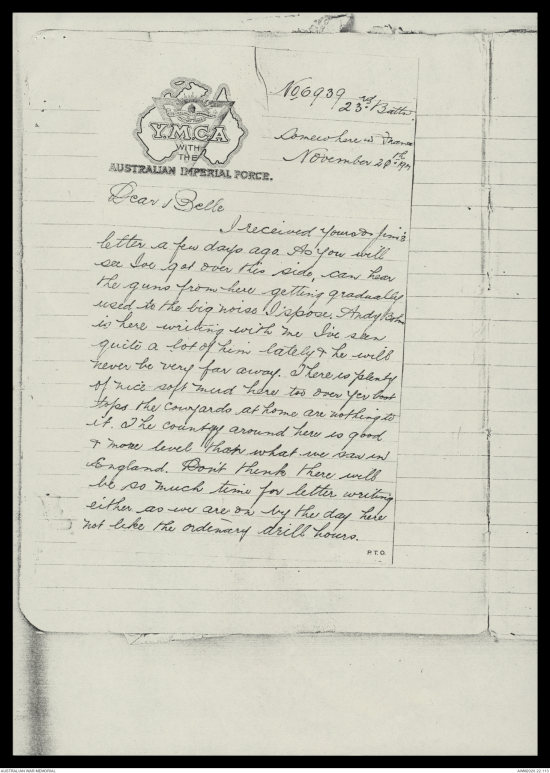 No 6939
23rd Battn.
Y.M.C.A
WITH
THE
AUSTRALIAN IMPERIAL FORCE.
Somewhere in France
November 29th
Dear Belle
I received yours & Jim's
letter a few days ago. As you will
see I've got over this side, can hear
the guns from here getting gradually
used to the big noise I spose. Andy
is here writing with me I've seen
quite a lot of him lately & he will
never be very far away. There is plenty
of nice soft mud here too over yer boot
tops the cowyards at home are nothing to
it. The country around here is good
& more level than what we saw in
England. Dont think there will
be so much time for letter writing
either as we are on by the day here
not like the ordinary drill hours.
P.T.O.
AUSTRALIAN WAR MEMORIAL